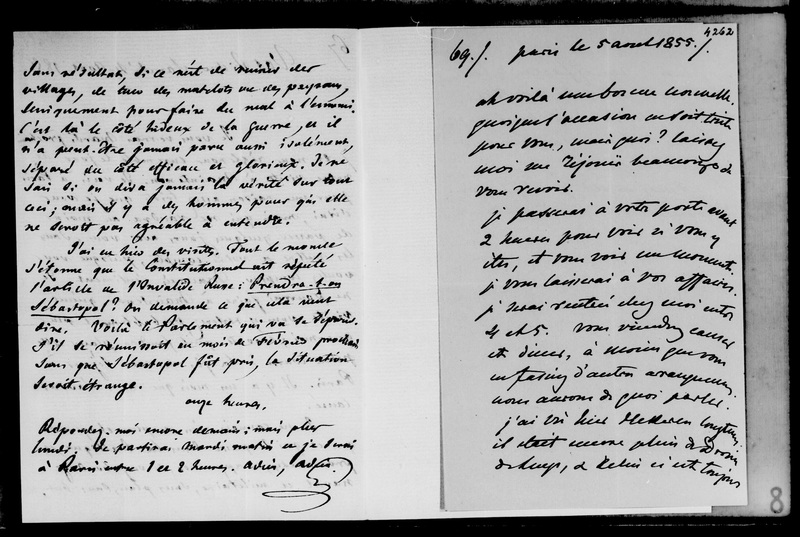 sans résultat, si ce n'est de ruiner des
villages, de tuer des matelots ou des paysans,
uniquement pour faire du mal à l'ennemi.
C'est là le côté hideux de la guerre, et il
n'a peut-être jamais paru aussi isolément,
séparé du côté efficace et glorieux. Je ne
sais si on dira jamais la vérité sur tout
ceci; mais il y a des hommes pour qui elle
ne seroit pas agréable à entendre.
J'ai eu hier des visites. Tout le monde
s'étonne que le Constitutionnel ait répété
l'article de l'Invalide Russe: Prendra-t-on
Sébastopol? On demande ce que cela veut
dire. Voilà le Parlement qui va se séparer.
S'il se réunissoit au mois de Février prochain
sans que Sébastopol fût pris, la situation
seroit étrange.
onze heures.
Répondez moi encore demain; mais plus
lundi. Je partirai mardi matin et je serai
à Paris entre 1 et 2 heures. Adieu, adieu
4262
69./. paris le 5 aout 1855./.
ah voilà une bonne nouvelle.
quoique l'occasion en soit triste
pour vous, mais quoi? laissez
moi me réjouir beaucoup de
vous revoir.
je passerai à votre porte avant
2 heures pour voir si vous y
êtes, et vous voir un moment.
je vous laisserai à vos affaires.
je serai rentrée chez moi entre
4 et 5. vous viendrez causer
et diner, à moins que vous
ne fassiez d'autres arrangements.
nous aurons de quoi parler.
j'ai vu hier Hekeren longtems
il était encore plein de
et ici est toujours
8